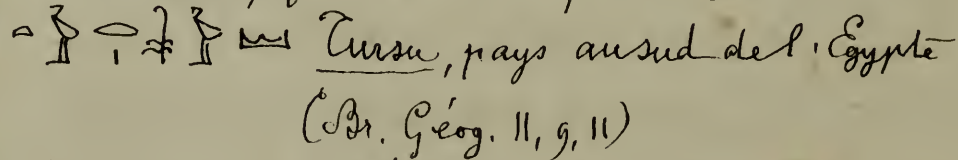 𓏏𓅱𓂋𓏤𓇓𓅱𓈉 Tursu, pays au sud de l'Égypte
(Br. Géog. II, 9, 11)